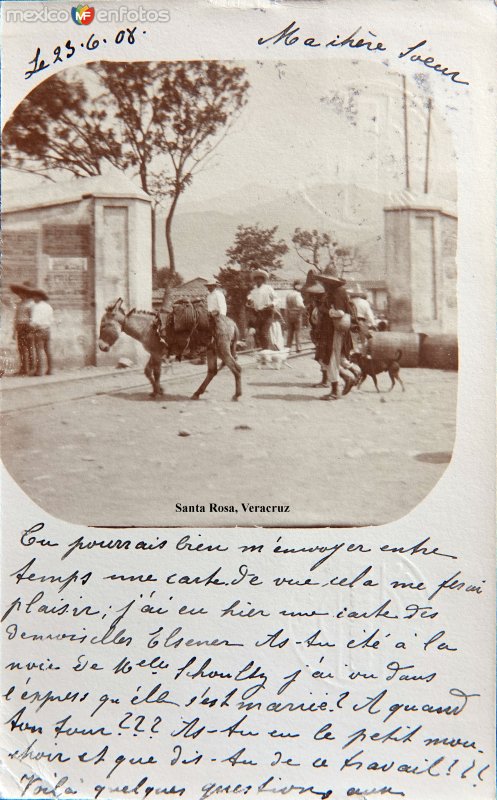 mexico enfotos
MF
Le 23.6.08.
Ma chère Soeur
Santa Rosa, Veracruz
Tu pourrais bien m'envoyer entre
temps une carte de vue, cela me ferai
plaisir; j'ai eu hier une carte des
demoiselles Elsener As-tu été à la
noce de Melle Schoultz j'ai vu dans
l'express qu'elle s'est mariée? A quand
ton tour??? As-tu eu le petit mou-
choir et que dis-tu de ce travail?!?
Voilà quelques questions, aux